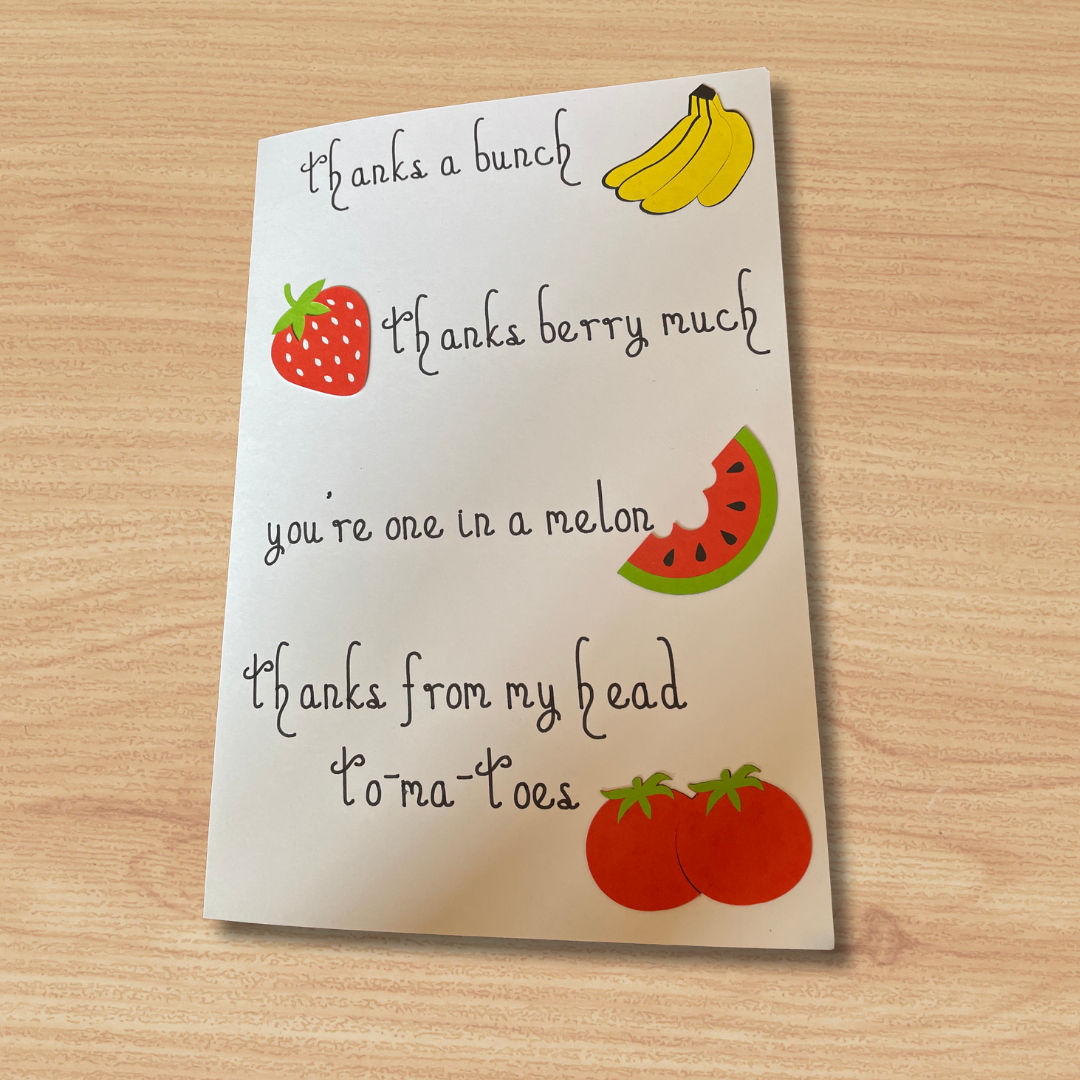 thanks a bunch
thanks berry much
you're one in a melon
thanks from my head
to-ma-toes